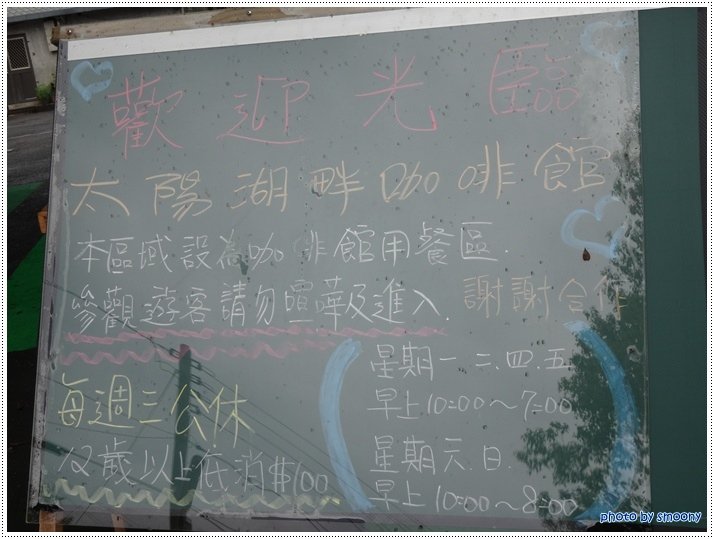 歡迎光臨
太陽湖畔咖啡館
本區域設為咖啡館用餐區.
參觀遊客請勿喧嘩及進入. 謝謝合作
每週三公休
12歲以上低消$100
星期一.二.四.五
早上10:00～7:00
星期六.日.
早上10:00～8:00
photo by smoony